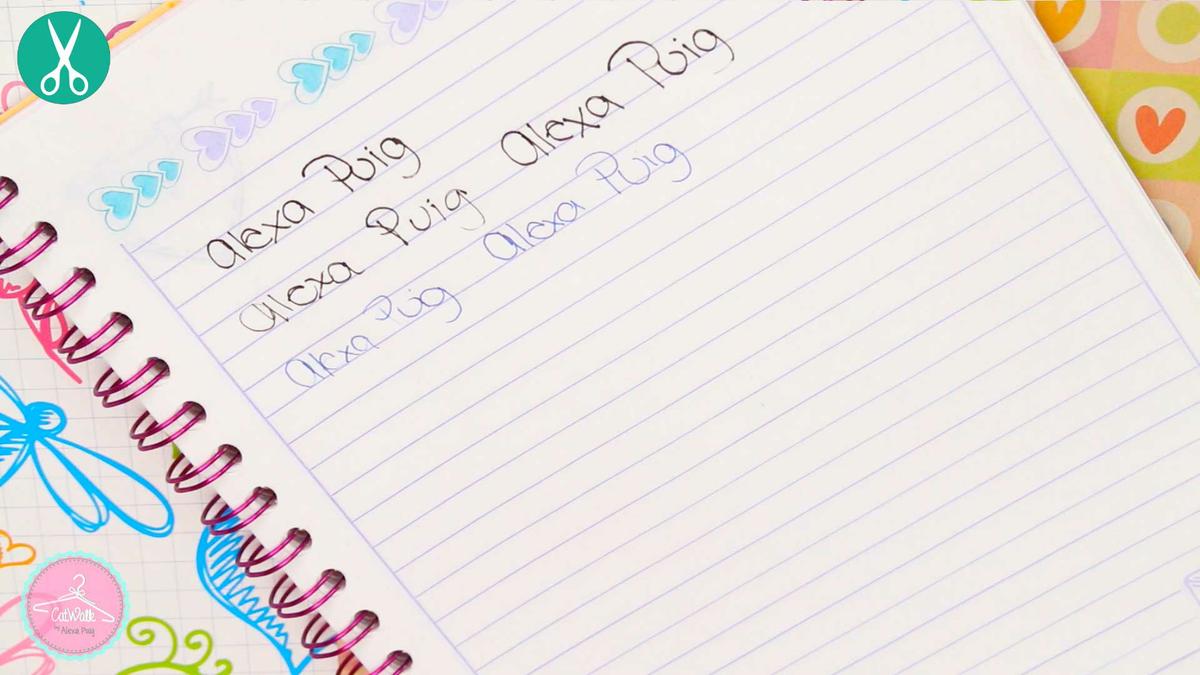 Alexa Puig Alexa Puig
Alexa Puig Alexa Puig
Alexa Puig
CatWalk
by Alexa Puig